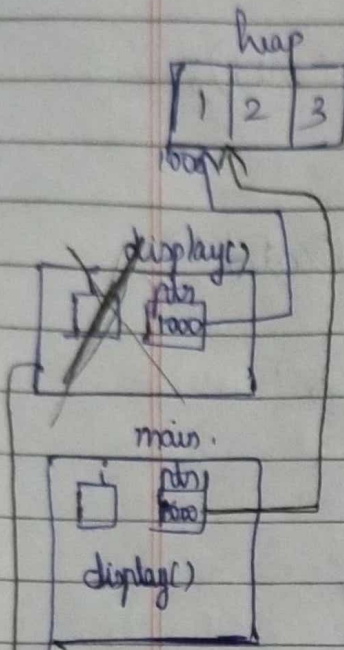 heap
1 2 3
1000
display()
ptr
1000
main.
i ptr
1000
display()